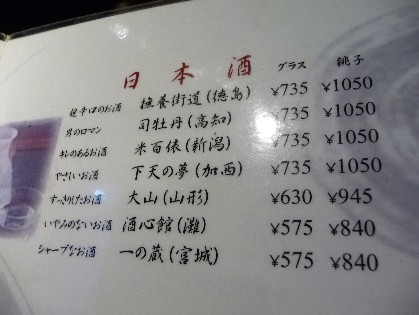 日本酒 グラス 銚子
超辛口のお酒 撫養街道(徳島) ¥735 ¥1050
男のロマン 司牡丹(高知) ¥735 ¥1050
キレのあるお酒 米百俵(新潟) ¥735 ¥1050
やさしいお酒 下天の夢(加西) ¥735 ¥1050
すっきりしたお酒 大山(山形) ¥630 ¥945
いやみのないお酒 酒心館(灘) ¥575 ¥840
シャープなお酒 一の蔵(宮城) ¥575 ¥840